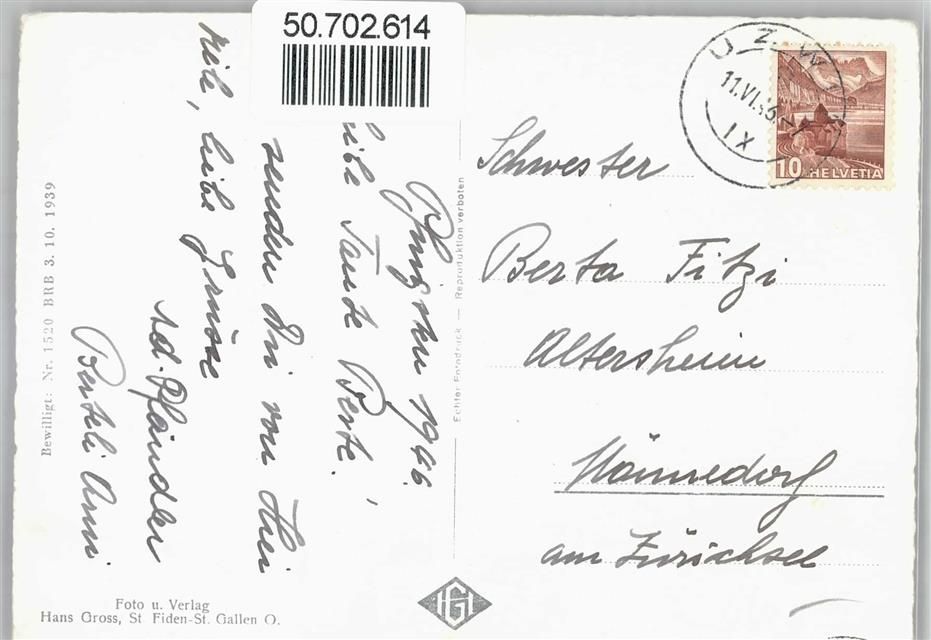 50.702.614
UZWIL
11.VI.46
IX
10 HELVETIA
Pfingsten 1946.
liebe Tante Berte,
senden Dir von hier
viele, liebe Grüsse
Ad. Pfänder
Berteli Anni
Schwester
Berta Fitzi
Altersheim
Männedorf
am Zürichsee
Echter Fotodruck — Reproduktion verboten
Bewilligt: Nr. 1520 BRB 3. 10. 1939
Foto u. Verlag
Hans Gross, St. Fiden-St. Gallen O.
HGH